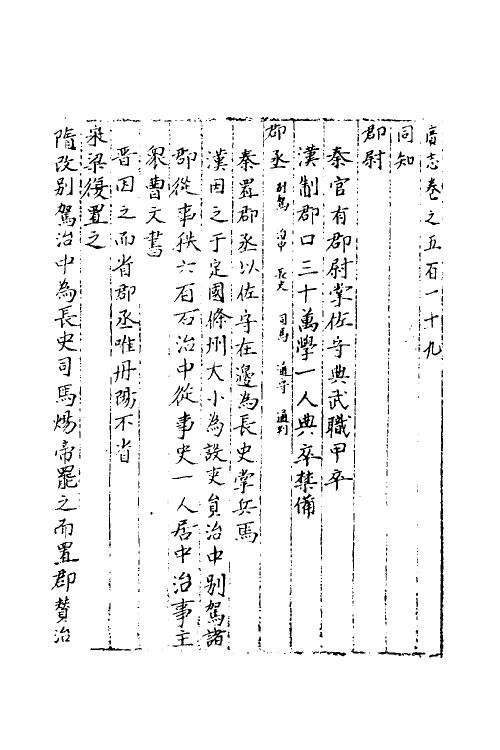 廣志卷之五百一十九
同知
郡尉
秦官有郡尉掌佐守典武職甲卒
漢制郡口三十萬學一人典卒禁備
郡丞 別駕 治中 長史 司馬 通守 通判
秦置郡丞以佐守在邊為長史掌兵馬
漢因之于定國條州大小為設吏員治中別駕諸
郡從事秩六百石治中從事史一人居中治事主
眾曹文書
晉因之而省郡丞唯丹陽不省
宋梁復置之
隋改別駕治中為長史司馬煬帝罷之而置郡贊治